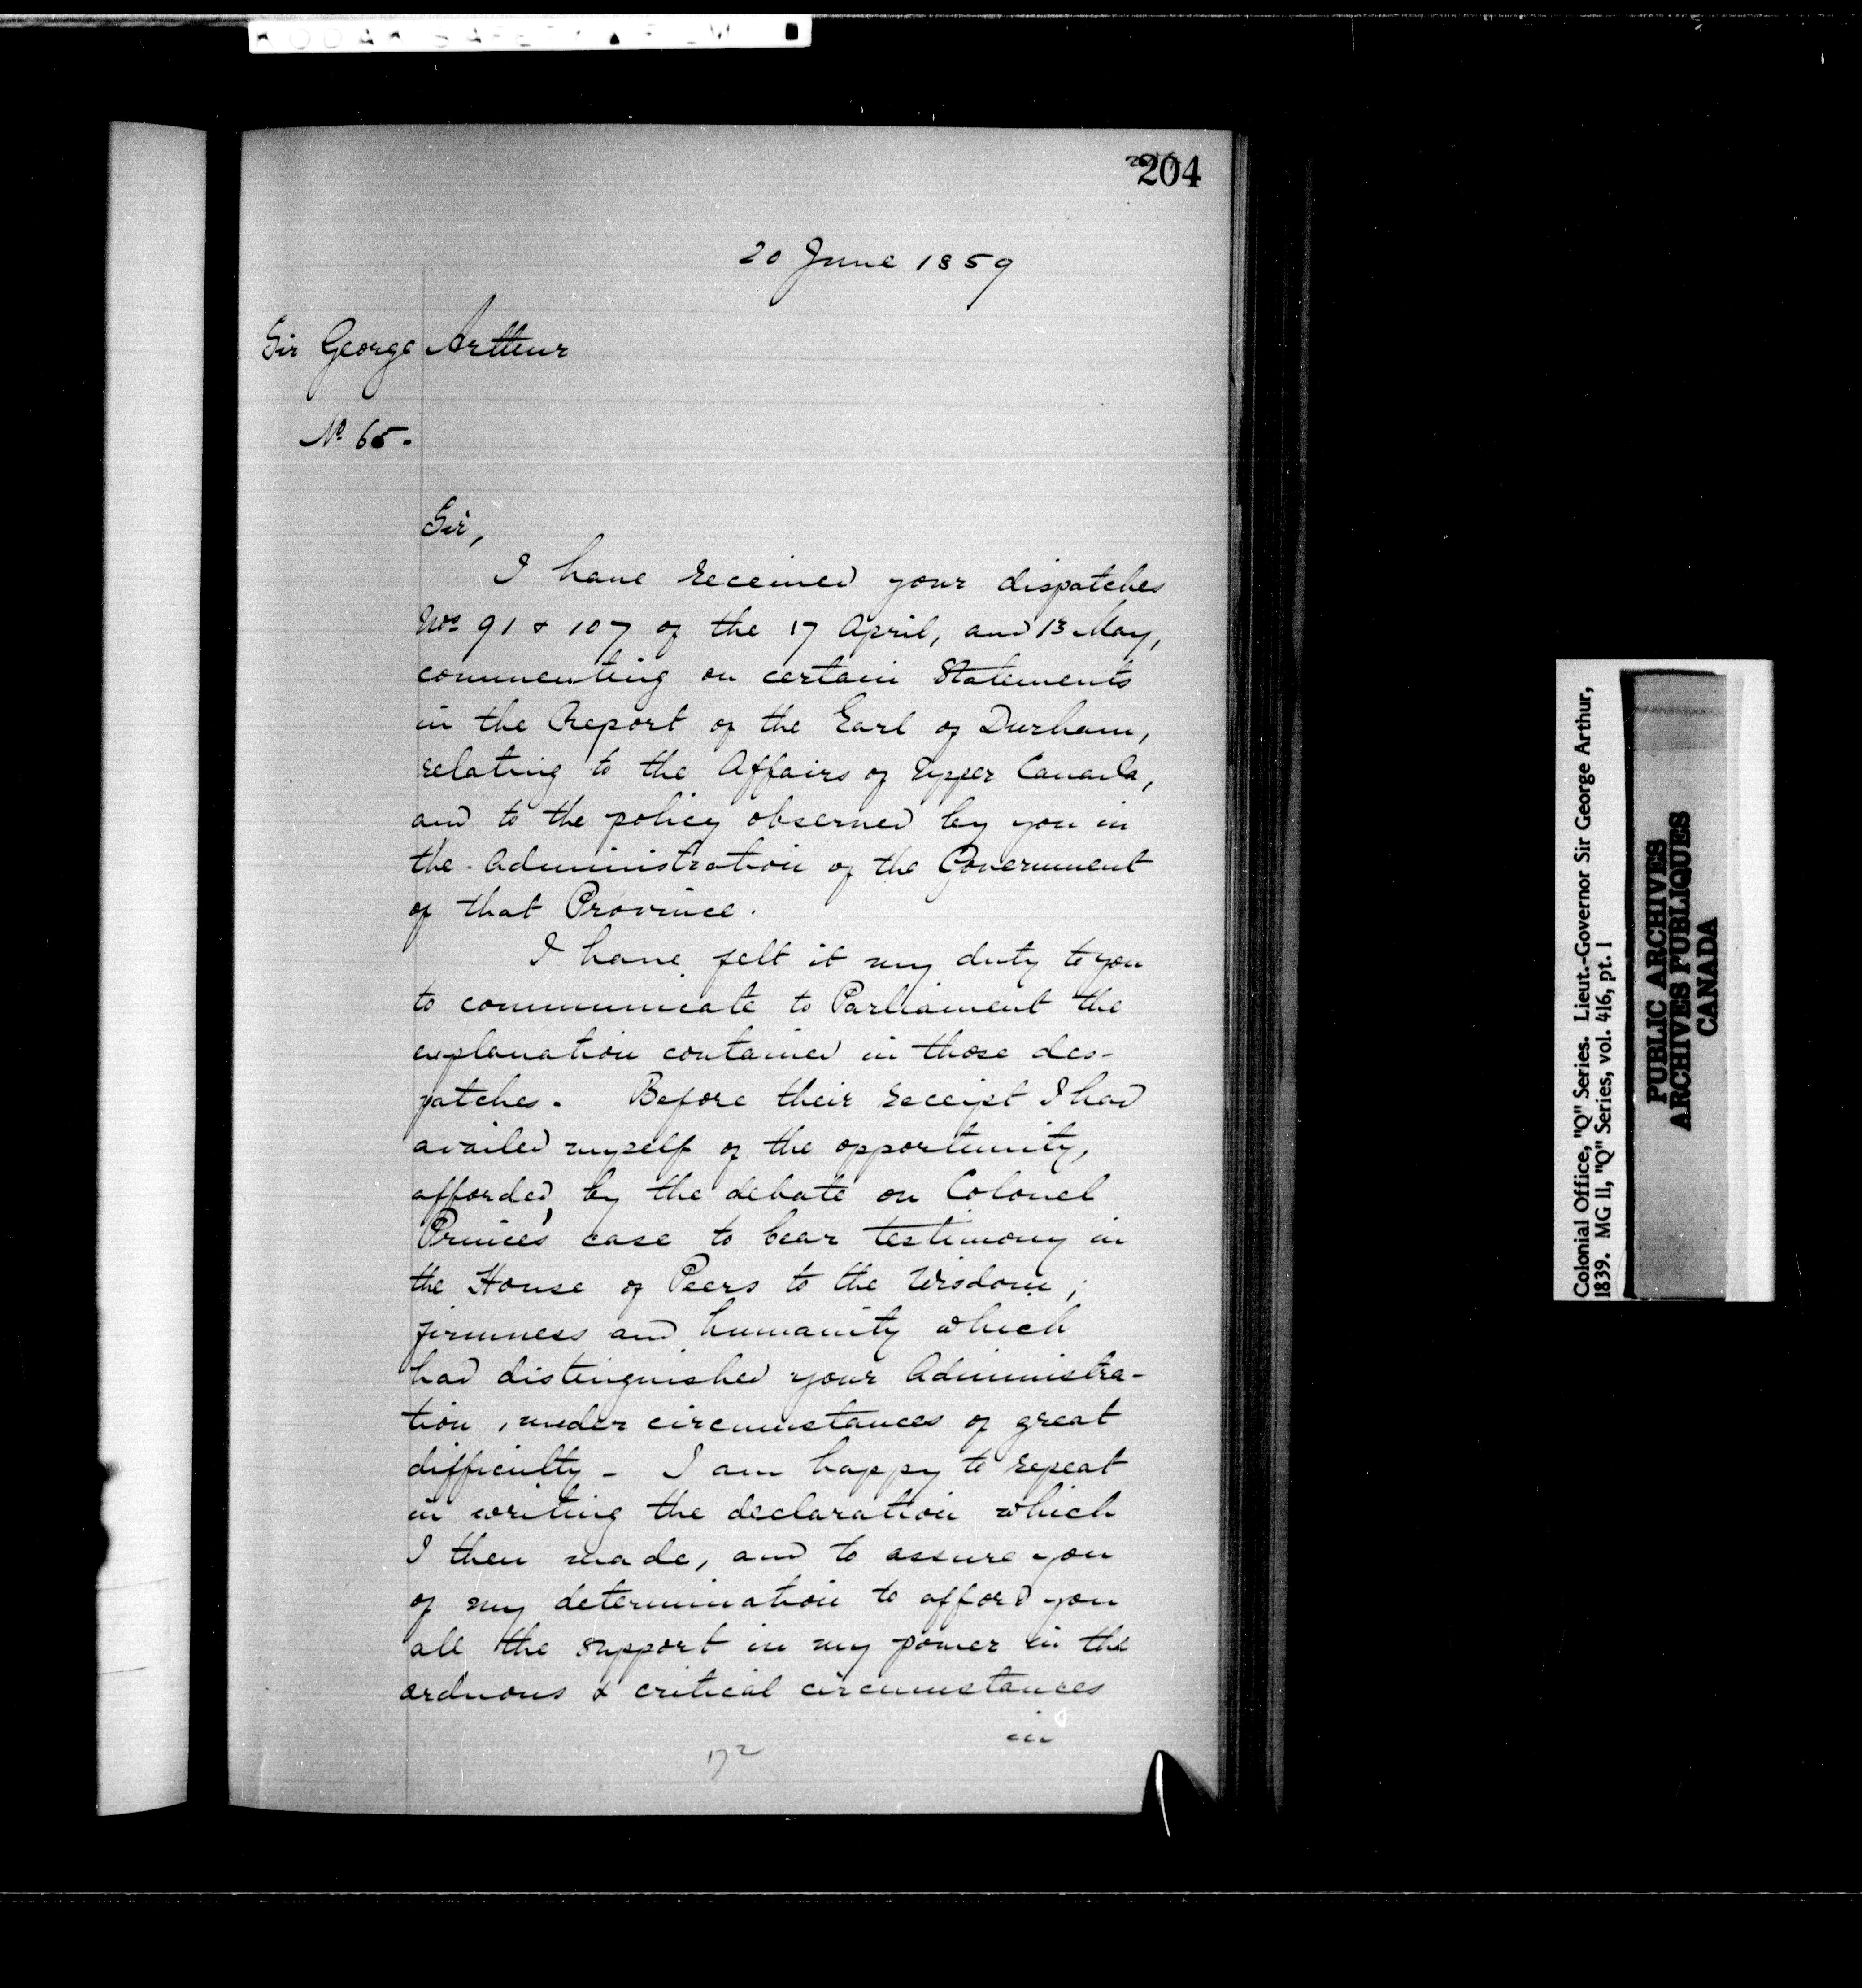 204
20 June 1859
Sir George Arthur
No 65.
Sir,
I have received your dispatches
Nos 91 & 107 of the 17 April, and 13 May,
commenting on certain Statements
in the Report of the Earl of Durham,
relating to the Affairs of Upper Canada,
and to the policy observed by you in
the Administration of the Government
of that Province.
I have felt it my duty to you
to communicate to Parliament the
explanation contained in those des-
patches. Before their receipt I had
availed myself of the opportunity,
afforded, by the debate on Colonel
Prince's case to bear testimony in
the House of Peers to the Wisdom,
firmness and humanity which
had distinguished your Administra-
tion, under circumstances of great
difficulty - I am happy to repeat
in writing the declaration which
I then made, and to assure you
of my determination to afford you
all the support in my power in the
arduous & critical circumstances
in
172
Colonial Office, "Q" Series. Lieut.-Governor Sir George Arthur,
1839. MG 11, "Q" Series, vol. 416, pt. 1
PUBLIC ARCHIVES
ARCHIVES PUBLIQUES
CANADA